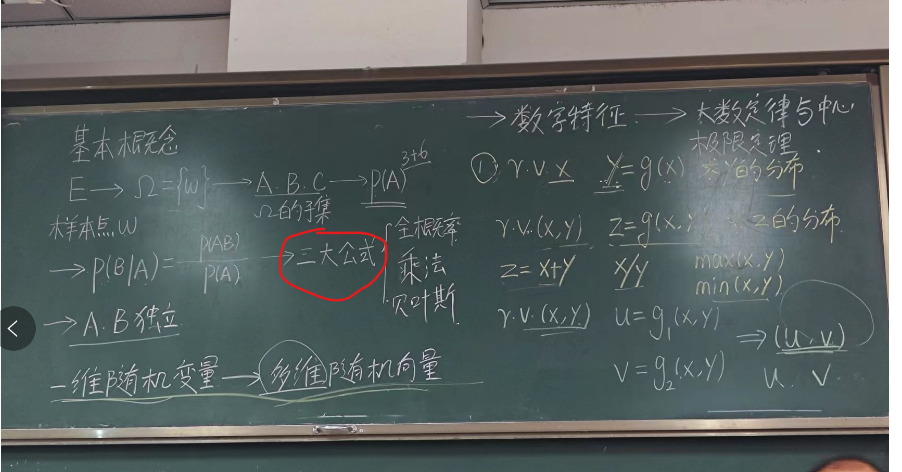 基本概念
E → Ω={w} → A.B.C → P(A) 3+6
Ω的子集
样本点 w
→ P(B|A)= P(AB)/P(A) → 三大公式 { 全概率
乘法
贝叶斯
→ A.B独立
一维随机变量 → 多维随机向量
→ 数字特征 → 大数定律与中心
极限定理.
① r.v. X Y=g(x) 求Y的分布
r.v.(X,Y) Z=g(X,Y) Z的分布
Z=X+Y X/Y max(X,Y)
min(X,Y)
r.v.(X,Y) U=g₁(X,Y)
⇒ (U.V)
V=g₂(X,Y) U. V